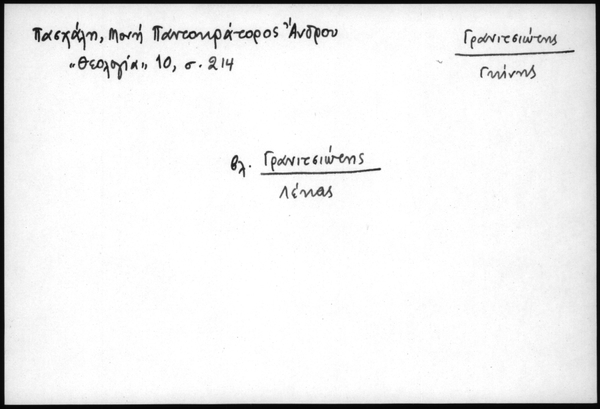 Πασχάλη, Μονή Παντοκράτορος Ἄνδρου
"Θεολογία" 10, σ. 214
Γρανιτσιώτης
Γκίνης
βλ. Γρανιτσιώτης
Λέκας